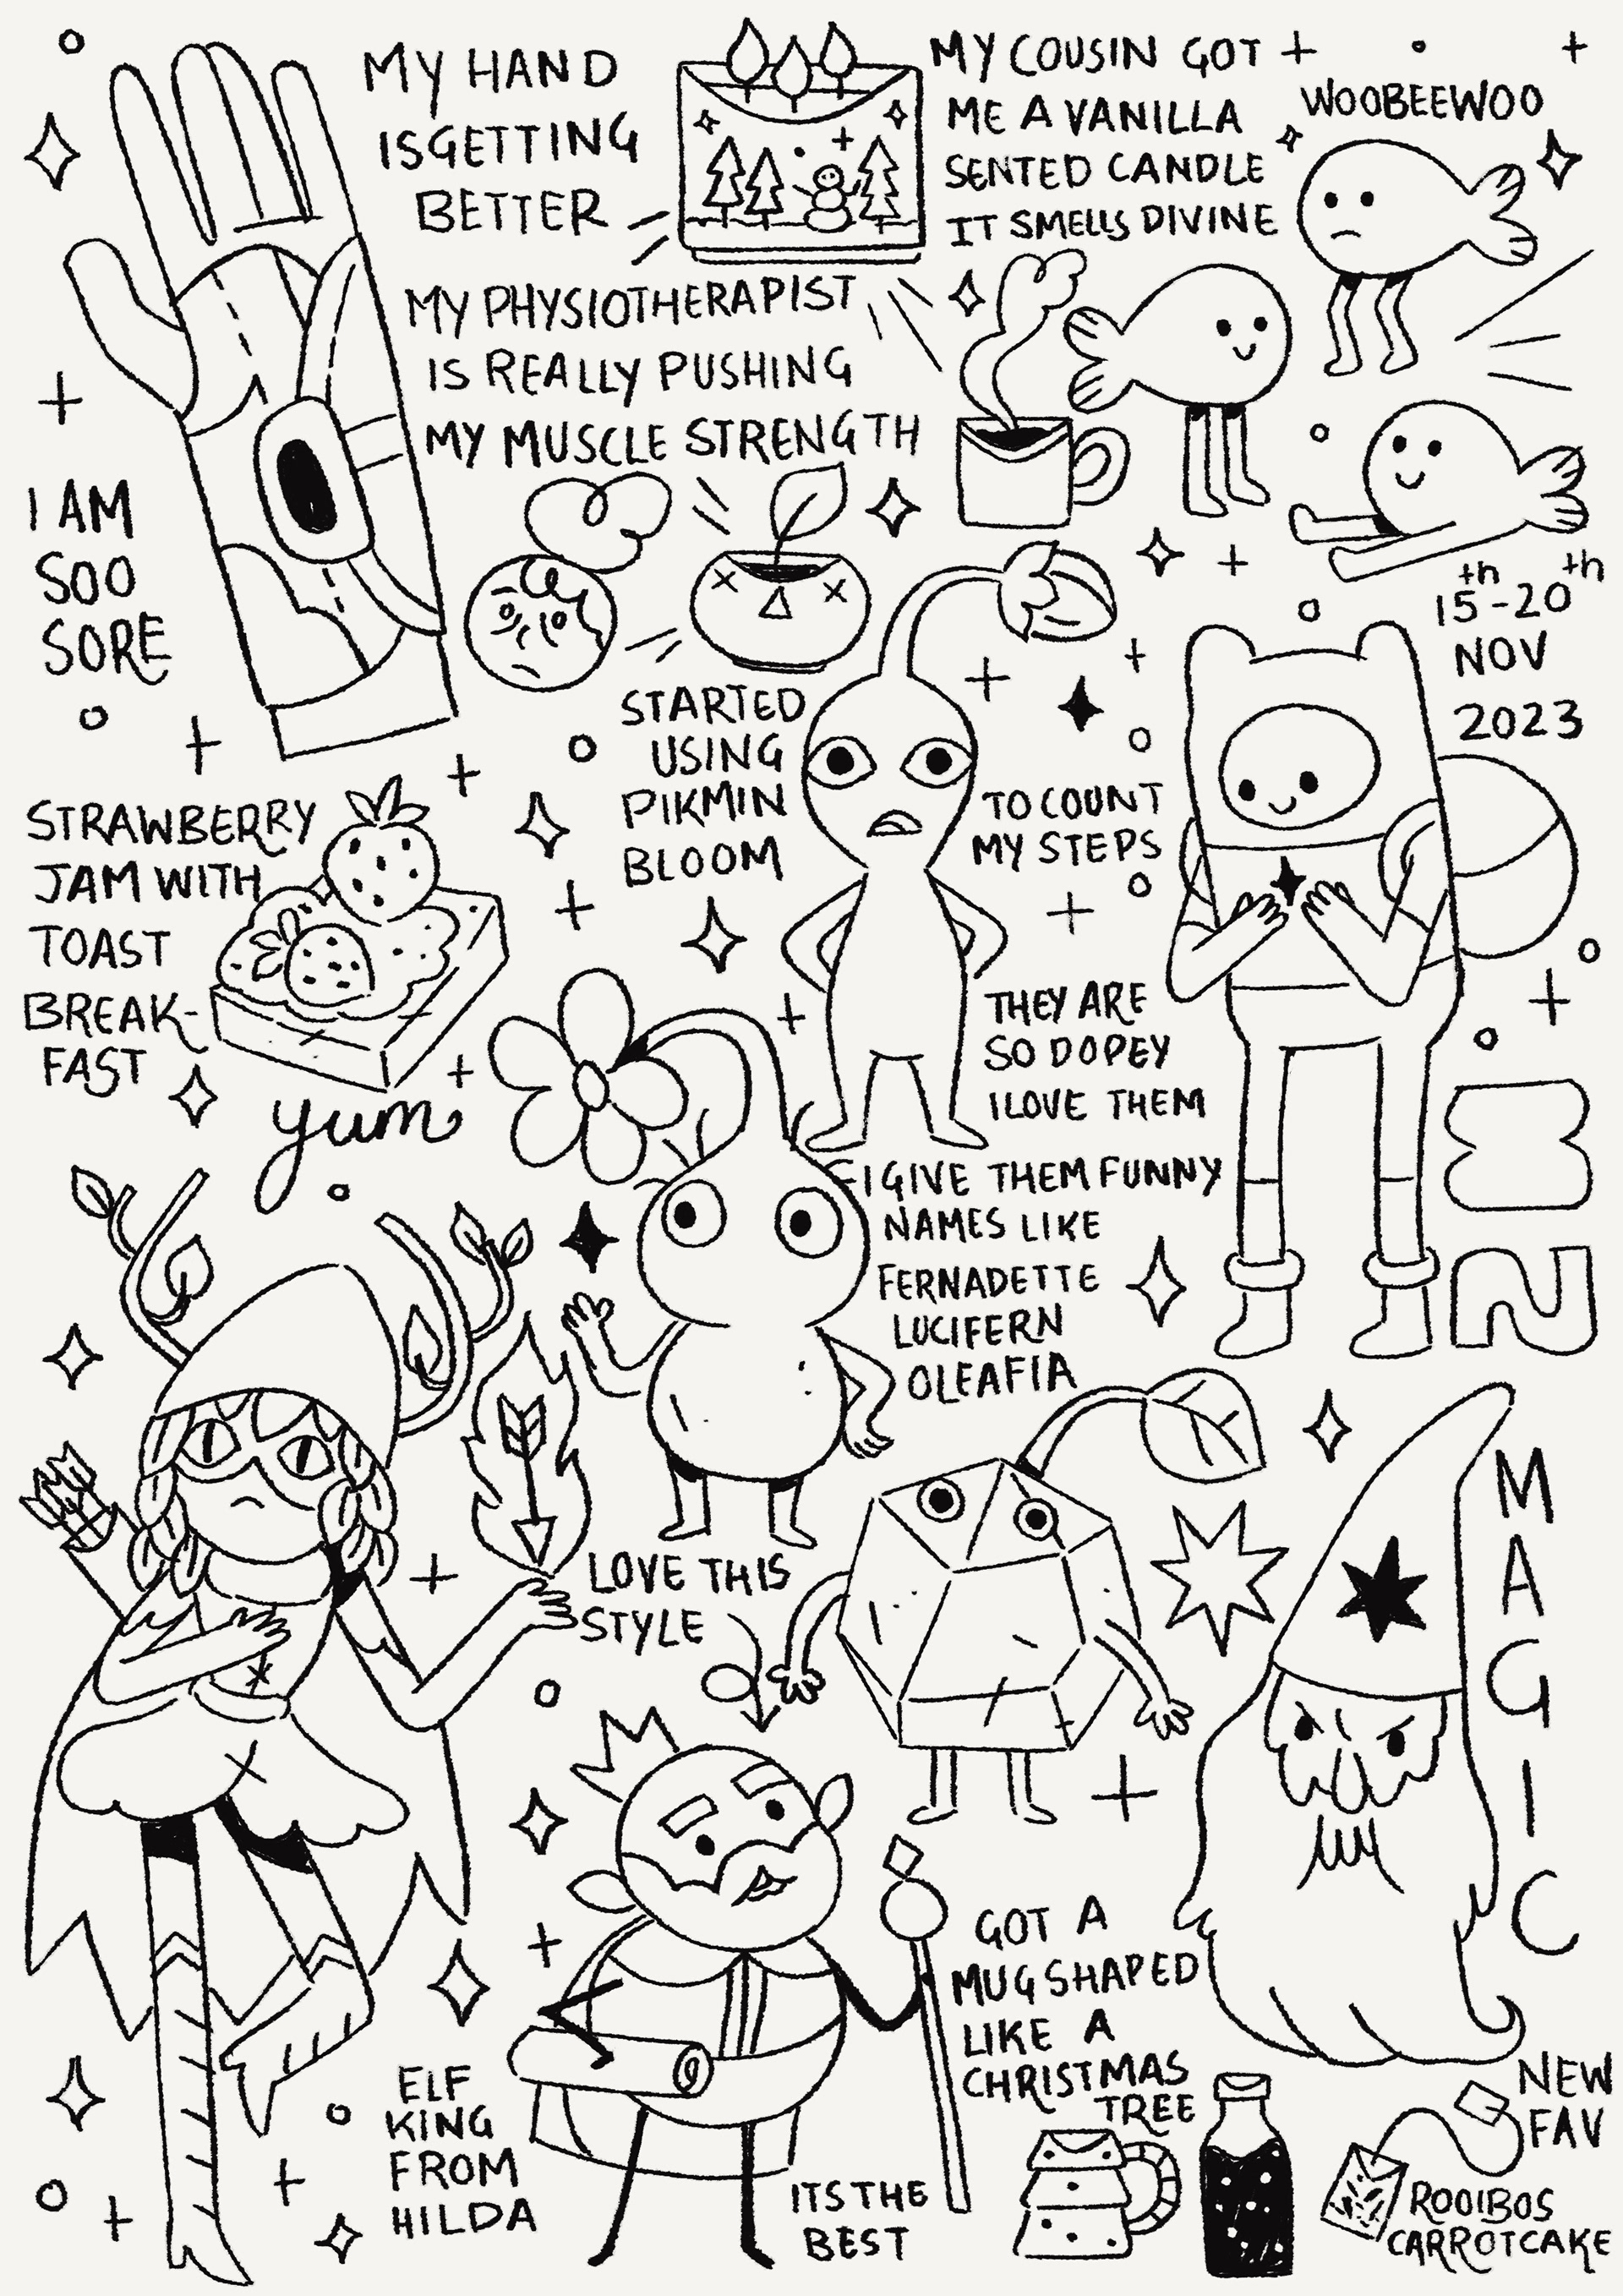 MY HAND
ISGETTING
BETTER
MY COUSIN GOT
ME A VANILLA
SENTED CANDLE
IT SMELLS DIVINE
WOOBEEWOO
MY PHYSIOTHERAPIST
IS REALLY PUSHING
MY MUSCLE STRENGTH
I AM
SOO
SORE
15th-20th
NOV
2023
STARTED
USING
PIKMIN
BLOOM
TO COUNT
MY STEPS
STRAWBERRY
JAM WITH
TOAST
BREAK-
FAST
yum
THEY ARE
SO DOPEY
I LOVE THEM
I GIVE THEM FUNNY
NAMES LIKE
FERNADETTE
LUCIFERN
OLEAFIA
LOVE THIS
STYLE
MAGIC
GOT A
MUG SHAPED
LIKE A
CHRISTMAS
TREE
ELF
KING
FROM
HILDA
ITS THE
BEST
NEW
FAV
ROOIBOS
CARROTCAKE